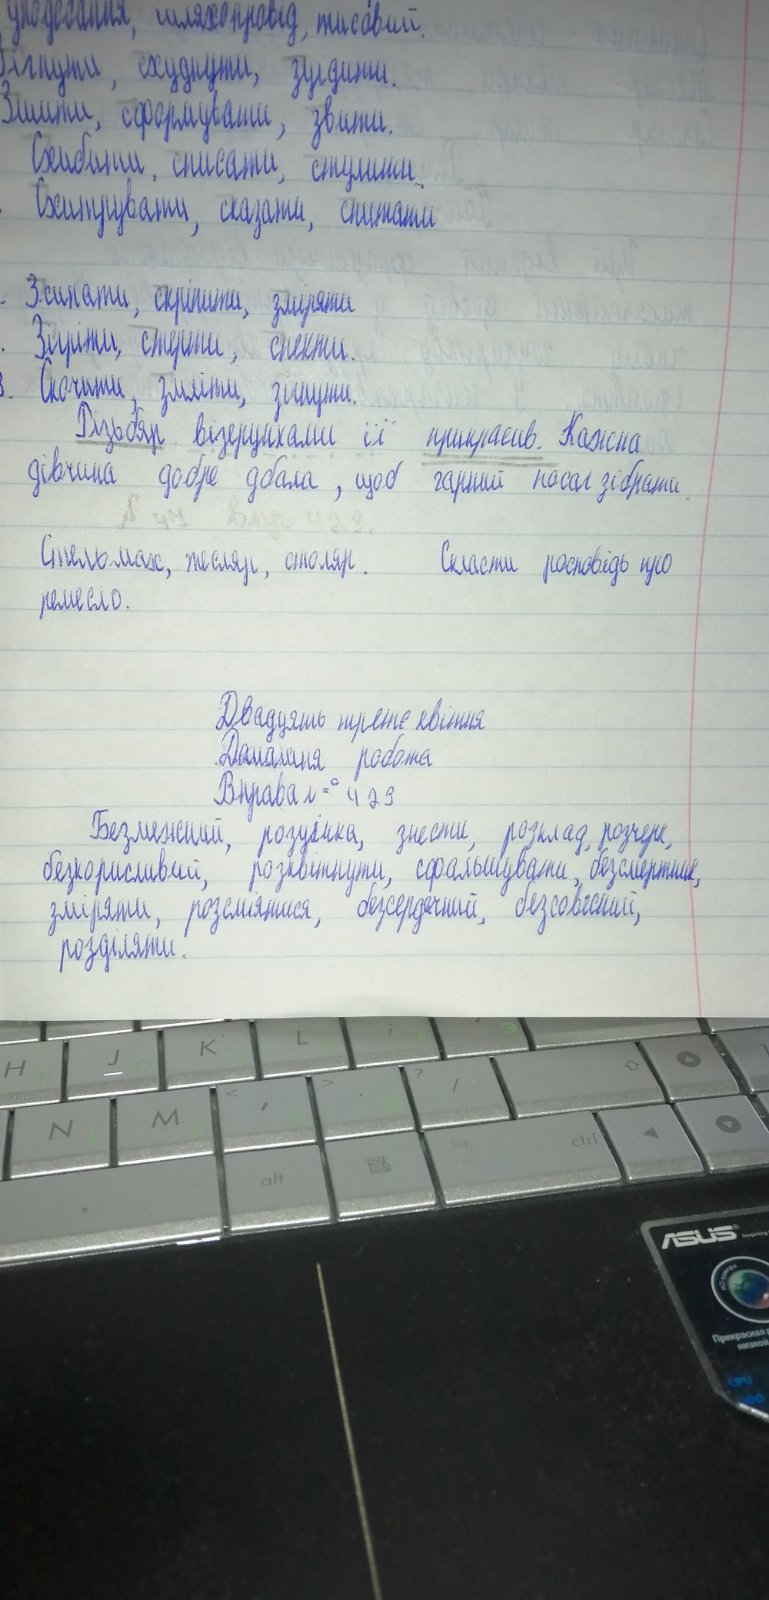 уподобання, шляхопровід, тисовий.
бігнути, схуднути, з'їздити.
Зшити, сформувати, звити.
Схибити, списати, стулити
Схитрувати, сказати, спитати
Зсипати, скріпити, зміряти
Зігріти, стерти, спекти.
3. Скочити, змліти, зігнути.
Різьбяр візерунками її прикрасив. Кажна
дівчина добре дбала, щоб гарний посаг зібрати.
Стельмах, тесляр, столяр. Скласти росповідь про
ремесло.
Двадцять третє квітня
Домашня робота
Вправа №° 429
Безмежний, розцінка, знести, розклад, розчерк,
безкорисливий, розквітнути, сфальшувати, безсмертник,
зміряти, розсміятися, безсердечний, безсовісний,
розділяти.
H J K L
N M < , > . ? /
alt ctrl
ASUS Inspiring
HD камера
Прекрасная
низкой
CPU